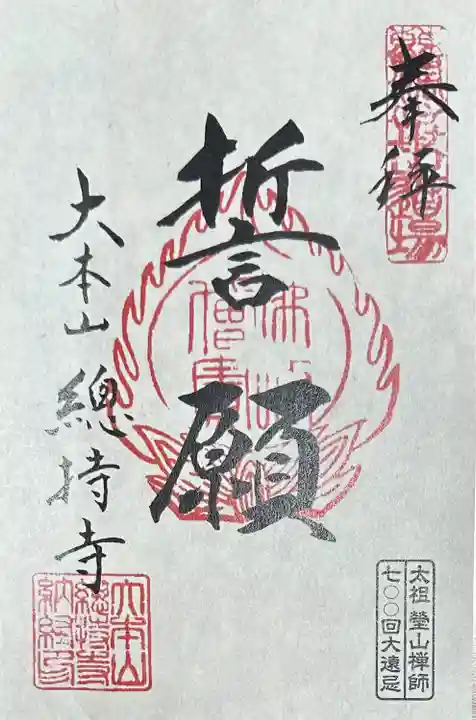 奉拝
誓願
大本山 總持寺
大本山
總持寺
納経印
太祖瑩山禅師
七〇〇回大遠忌